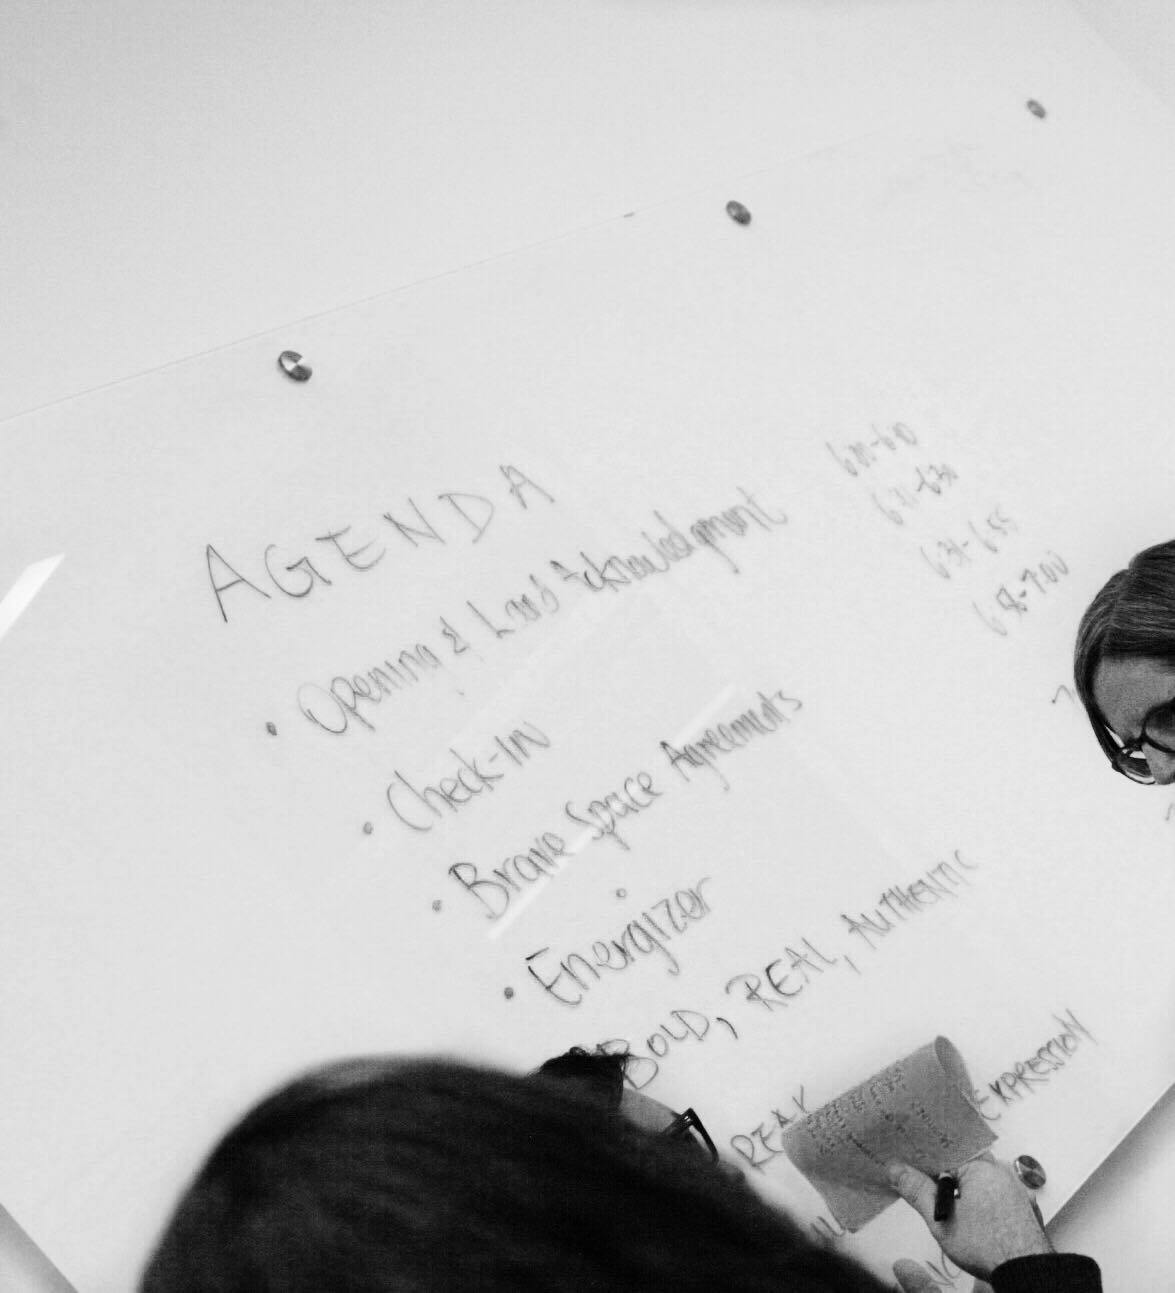 AGENDA
• Opening & Land Acknowledgment 6:00-6:10
• Check-IN 6:11-6:30
• Brave Space Agreements 6:31-6:55
• Energizer 6:56-7:00
BOLD, REAL, AUTHENTIC
EXPRESSION